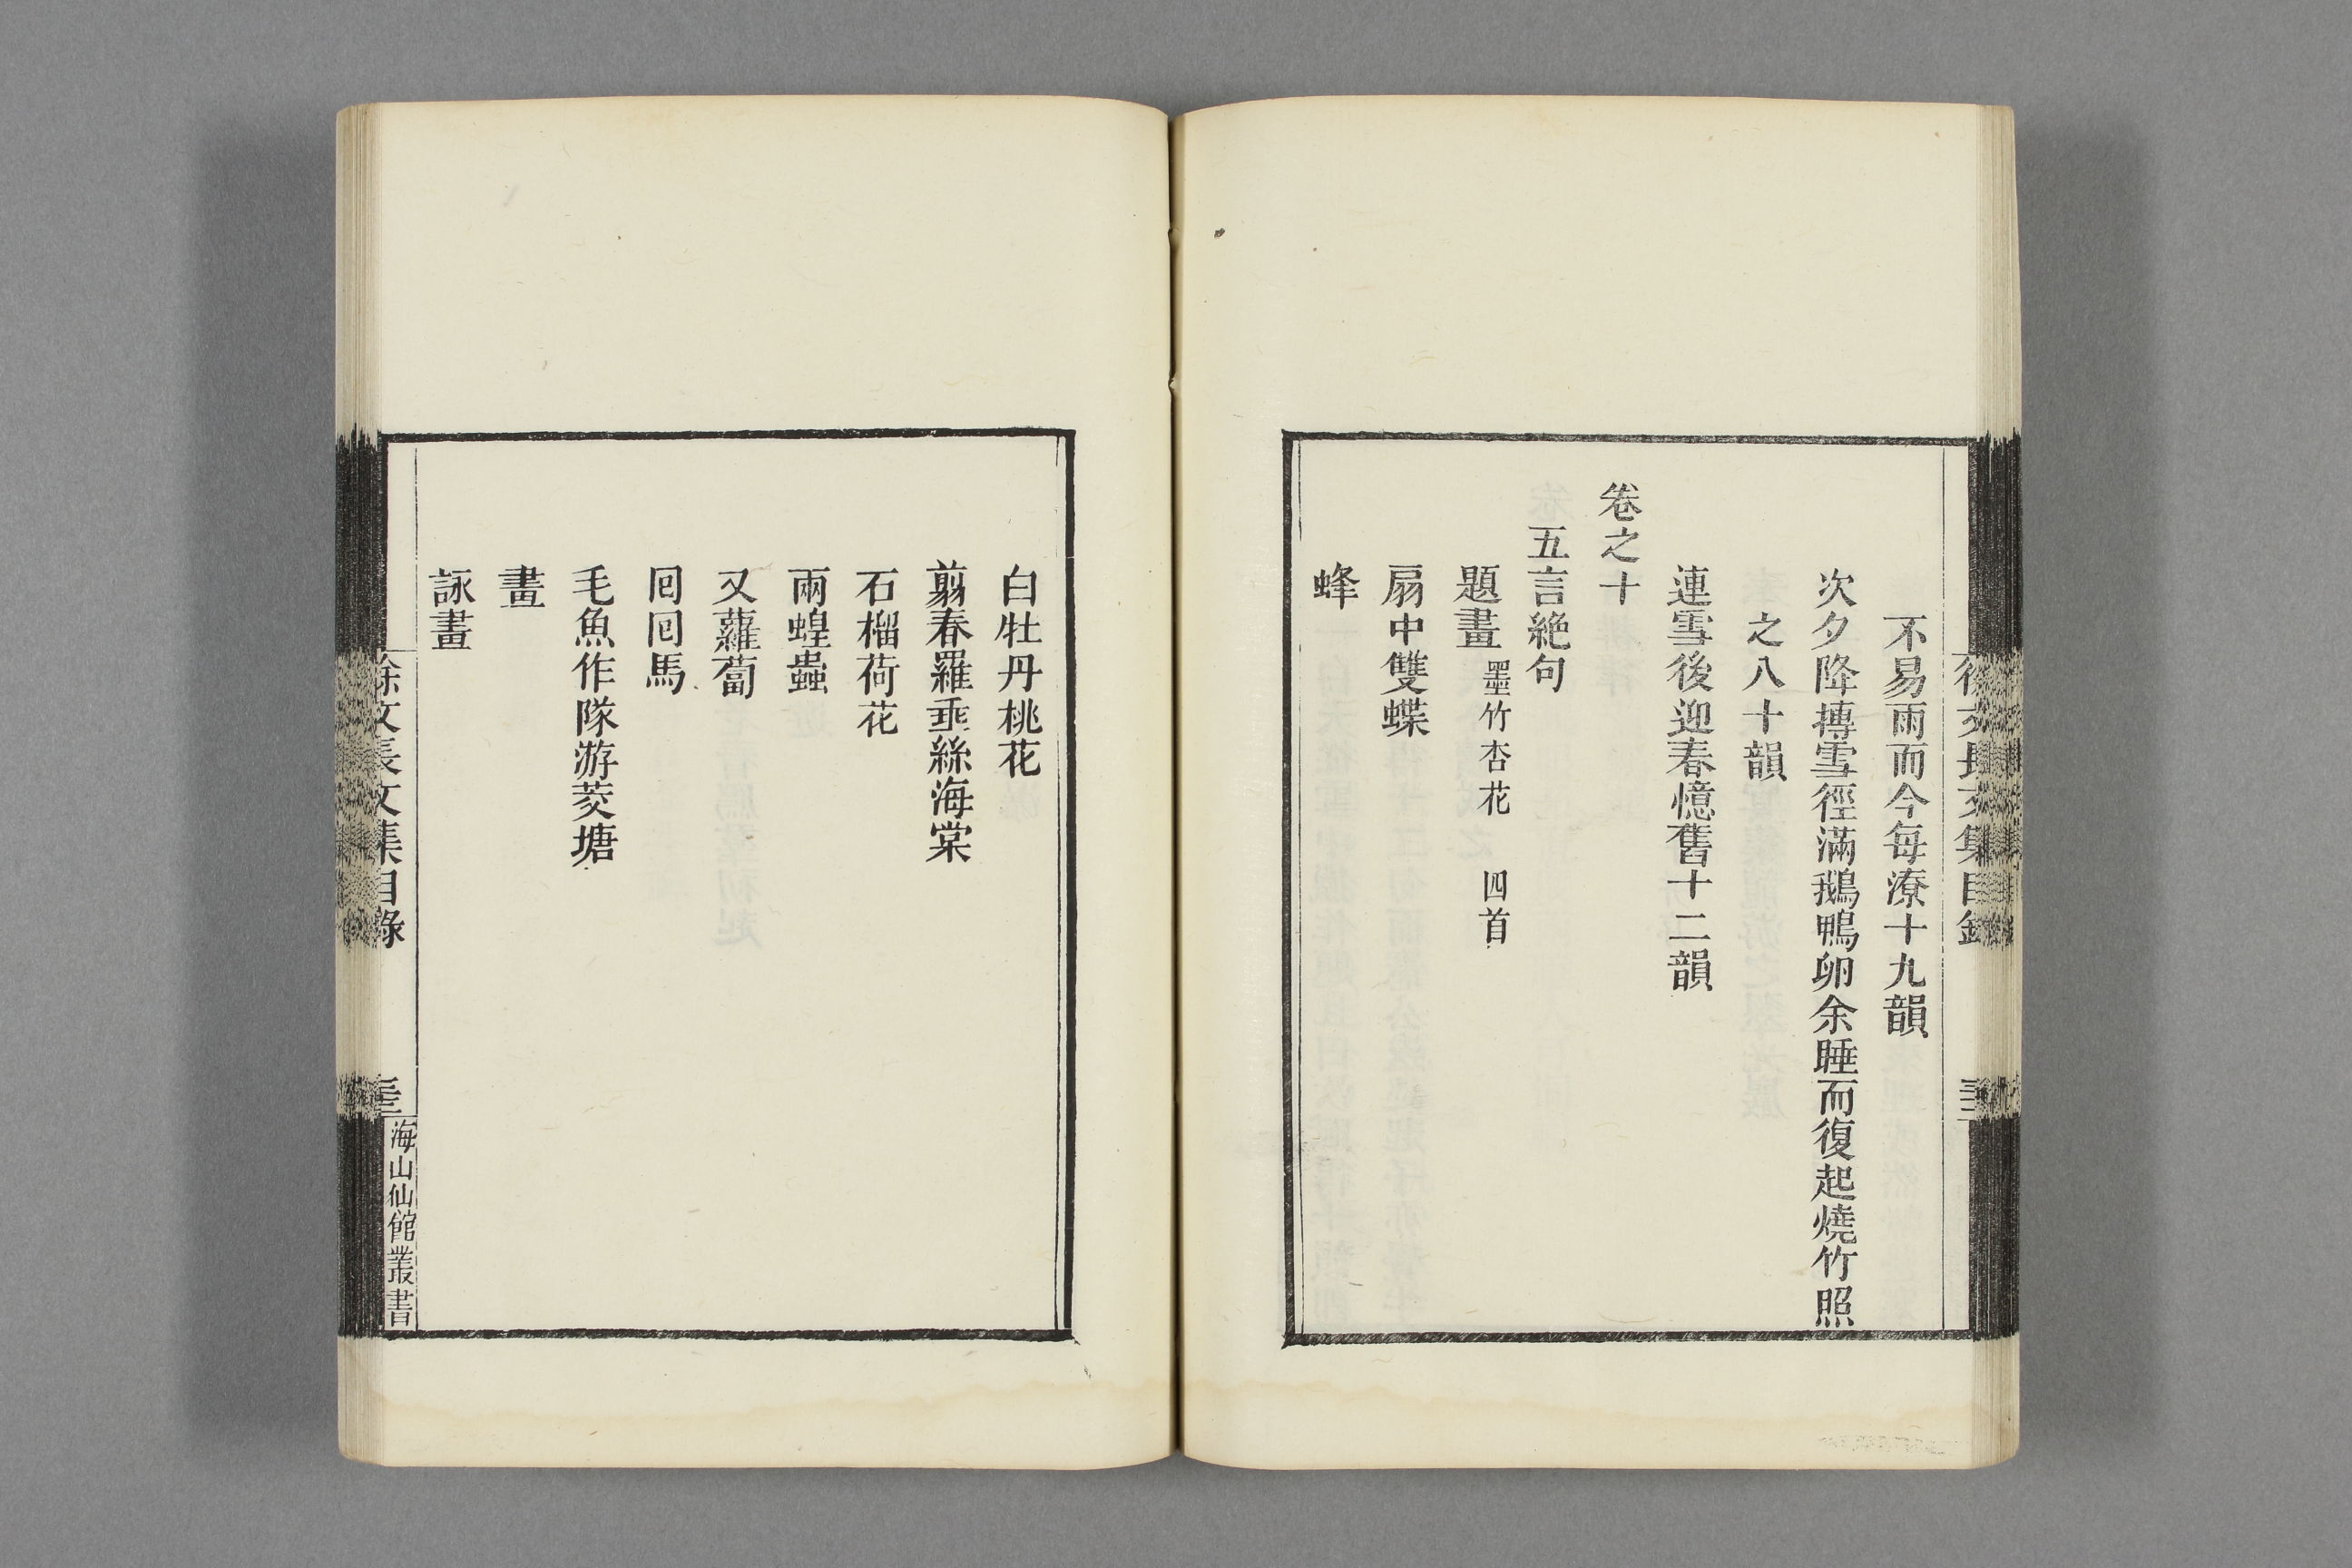 不易雨而今每潦十九韻
次夕降摶雪徑滿鵝鴨卵余睡而復起燒竹照
之八十韻
連雪後迎春憶舊十二韻
卷之十
五言絶句
題畫 墨竹杏花 四首
扇中雙蝶
蜂
白牡丹桃花
翦春羅垂絲海棠
石榴荷花
兩蝗蟲
又蘿蔔
囘囘馬
毛魚作隊游茭塘
畫
詠畫
徐文長文集目錄
海山仙館叢書